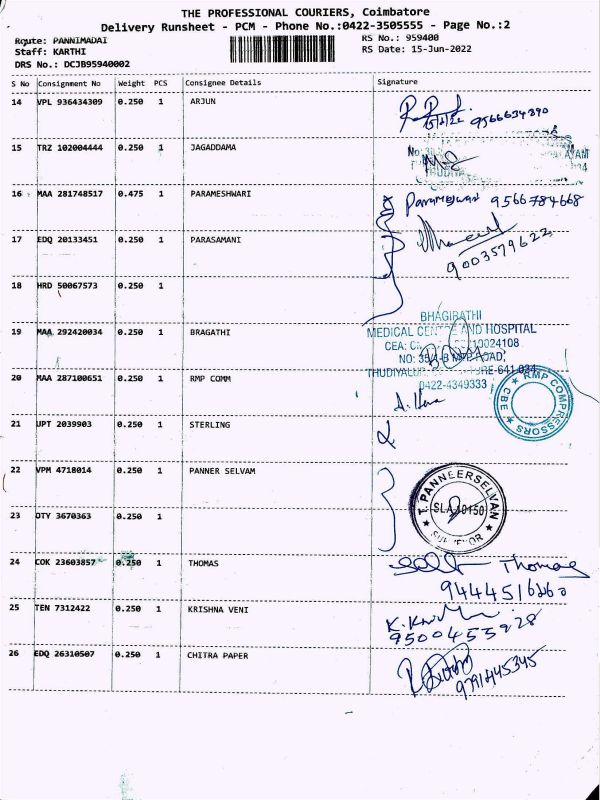 THE PROFESSIONAL COURIERS, Coimbatore
Delivery Runsheet - PCM - Phone No.:0422-3505555 - Page No.:2
Route: PANNIMADAI
RS No.: 959400
Staff: KARTHI
RS Date: 15-Jun-2022
DRS No.: DCJB95940002
S No Consignment No Weight PCS Consignee Details Signature
14 VPL 936434309 0.250 1 ARJUN
9566634890
15 TRZ 102004444 0.250 1 JAGADDAMA
16 MAA 281748517 0.475 1 PARAMESHWARI
Parameshwari 9566784668
17 EDQ 20133451 0.250 1 PARASAMANI
9003579622
18 HRD 50067573 0.250 1
BHAGIRATHI
19 MAA 292420034 0.250 1 BRAGATHI
MEDICAL CENTRE AND HOSPITAL
CEA: 10024108
NO: ROAD,
20 MAA 287100651 0.250 1 RMP COMM
0422-4349333
RMP COMPRESSORS
★ CBE ★
21 UPT 2039903 0.250 1 STERLING
22 VPM 4718014 0.250 1 PANNER SELVAM
T. PANNEERSELVAN
23 OTY 3670363 0.250 1
24 COK 23603857 0.250 1 THOMAS
Thomas
25 TEN 7312422 0.250 1 KRISHNA VENI
9500455928
26 EDQ 26310507 0.250 1 CHITRA PAPER
9791445345